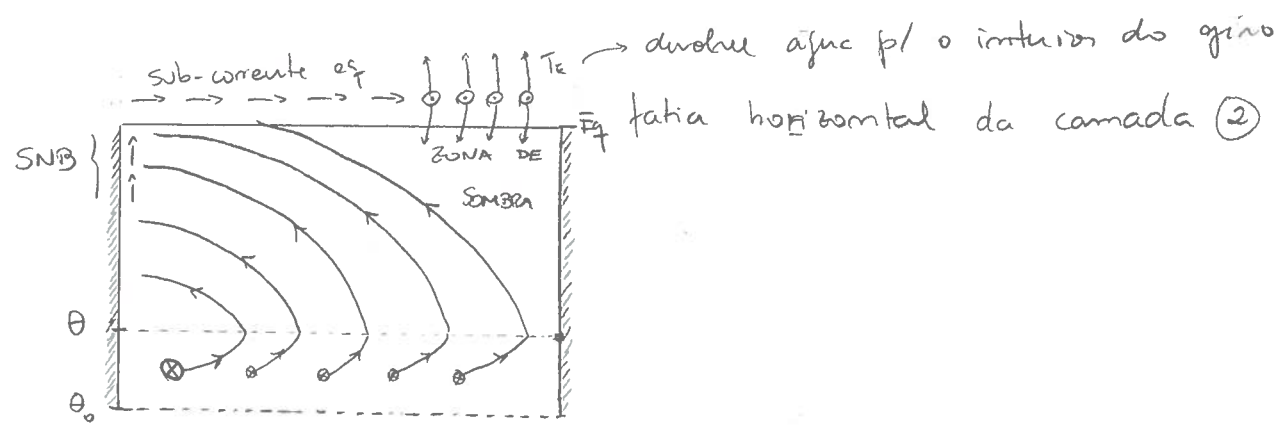 sub-corrente eq
TE → devolve água p/ o interior do giro
Eq fatia horizontal da camada ②
SNB
ZONA DE
SOMBRA
θ
θ₀